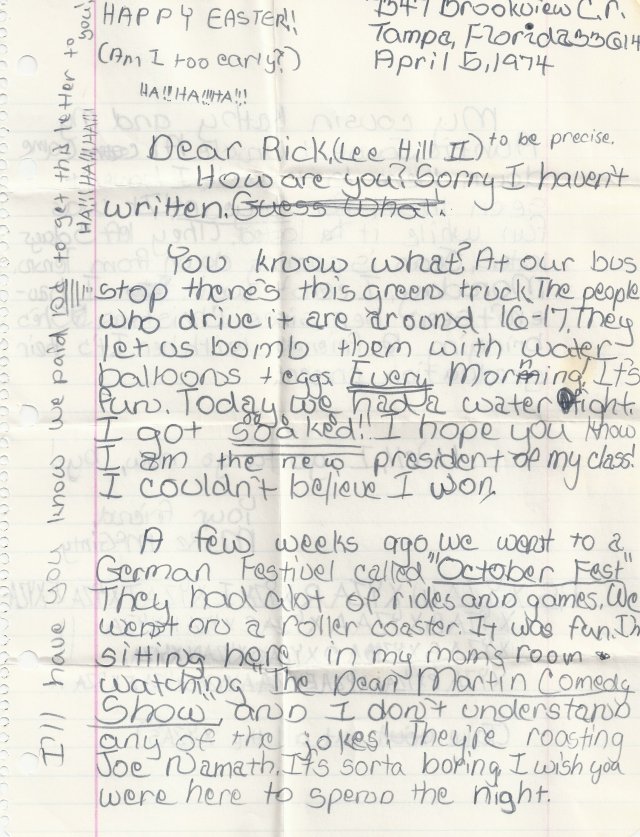 HAPPY EASTER!!
(Am I too early?)
HA!!HA!!!HA!!!
1347 Brookview Cr.
Tampa, Florida 33614
April 5, 1974
Dear Rick, (Lee Hill II) to be precise.
How are you? Sorry I haven't
written. Guess what.
You know what? At our bus
stop there's this green truck. The people
who drive it are around 16-17. They
let us bomb them with water
balloons + eggs Every Morning. It's
fun. Today we had a water fight.
I got soaked!! I hope you know
I am the new president of my class!
I couldn't believe I won.
A few weeks ago we went to a
German Festivel called "October Fest"
They had alot of rides and games. We
went on a roller coaster. It was fun. I'm
sitting here in my mom's room
watching "The Dean Martin Comedy
Show and I don't understand
any of the jokes! They're roosting
Joe Namath. It's sorta boring. I wish you
were here to spend the night.
I'll have you know we paid 10¢ to get this letter to you!
HA!!HA!!!HA!!HA!!